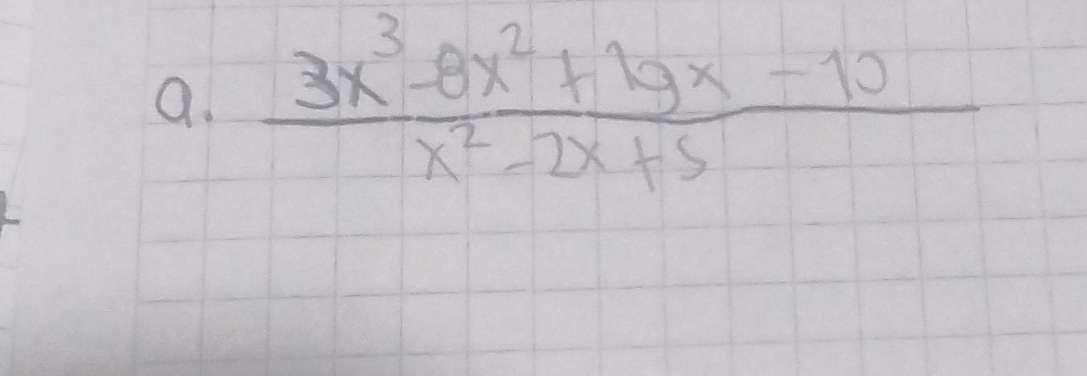 a. 3x³ - 8x² + 19x - 10
x² - 2x + 5